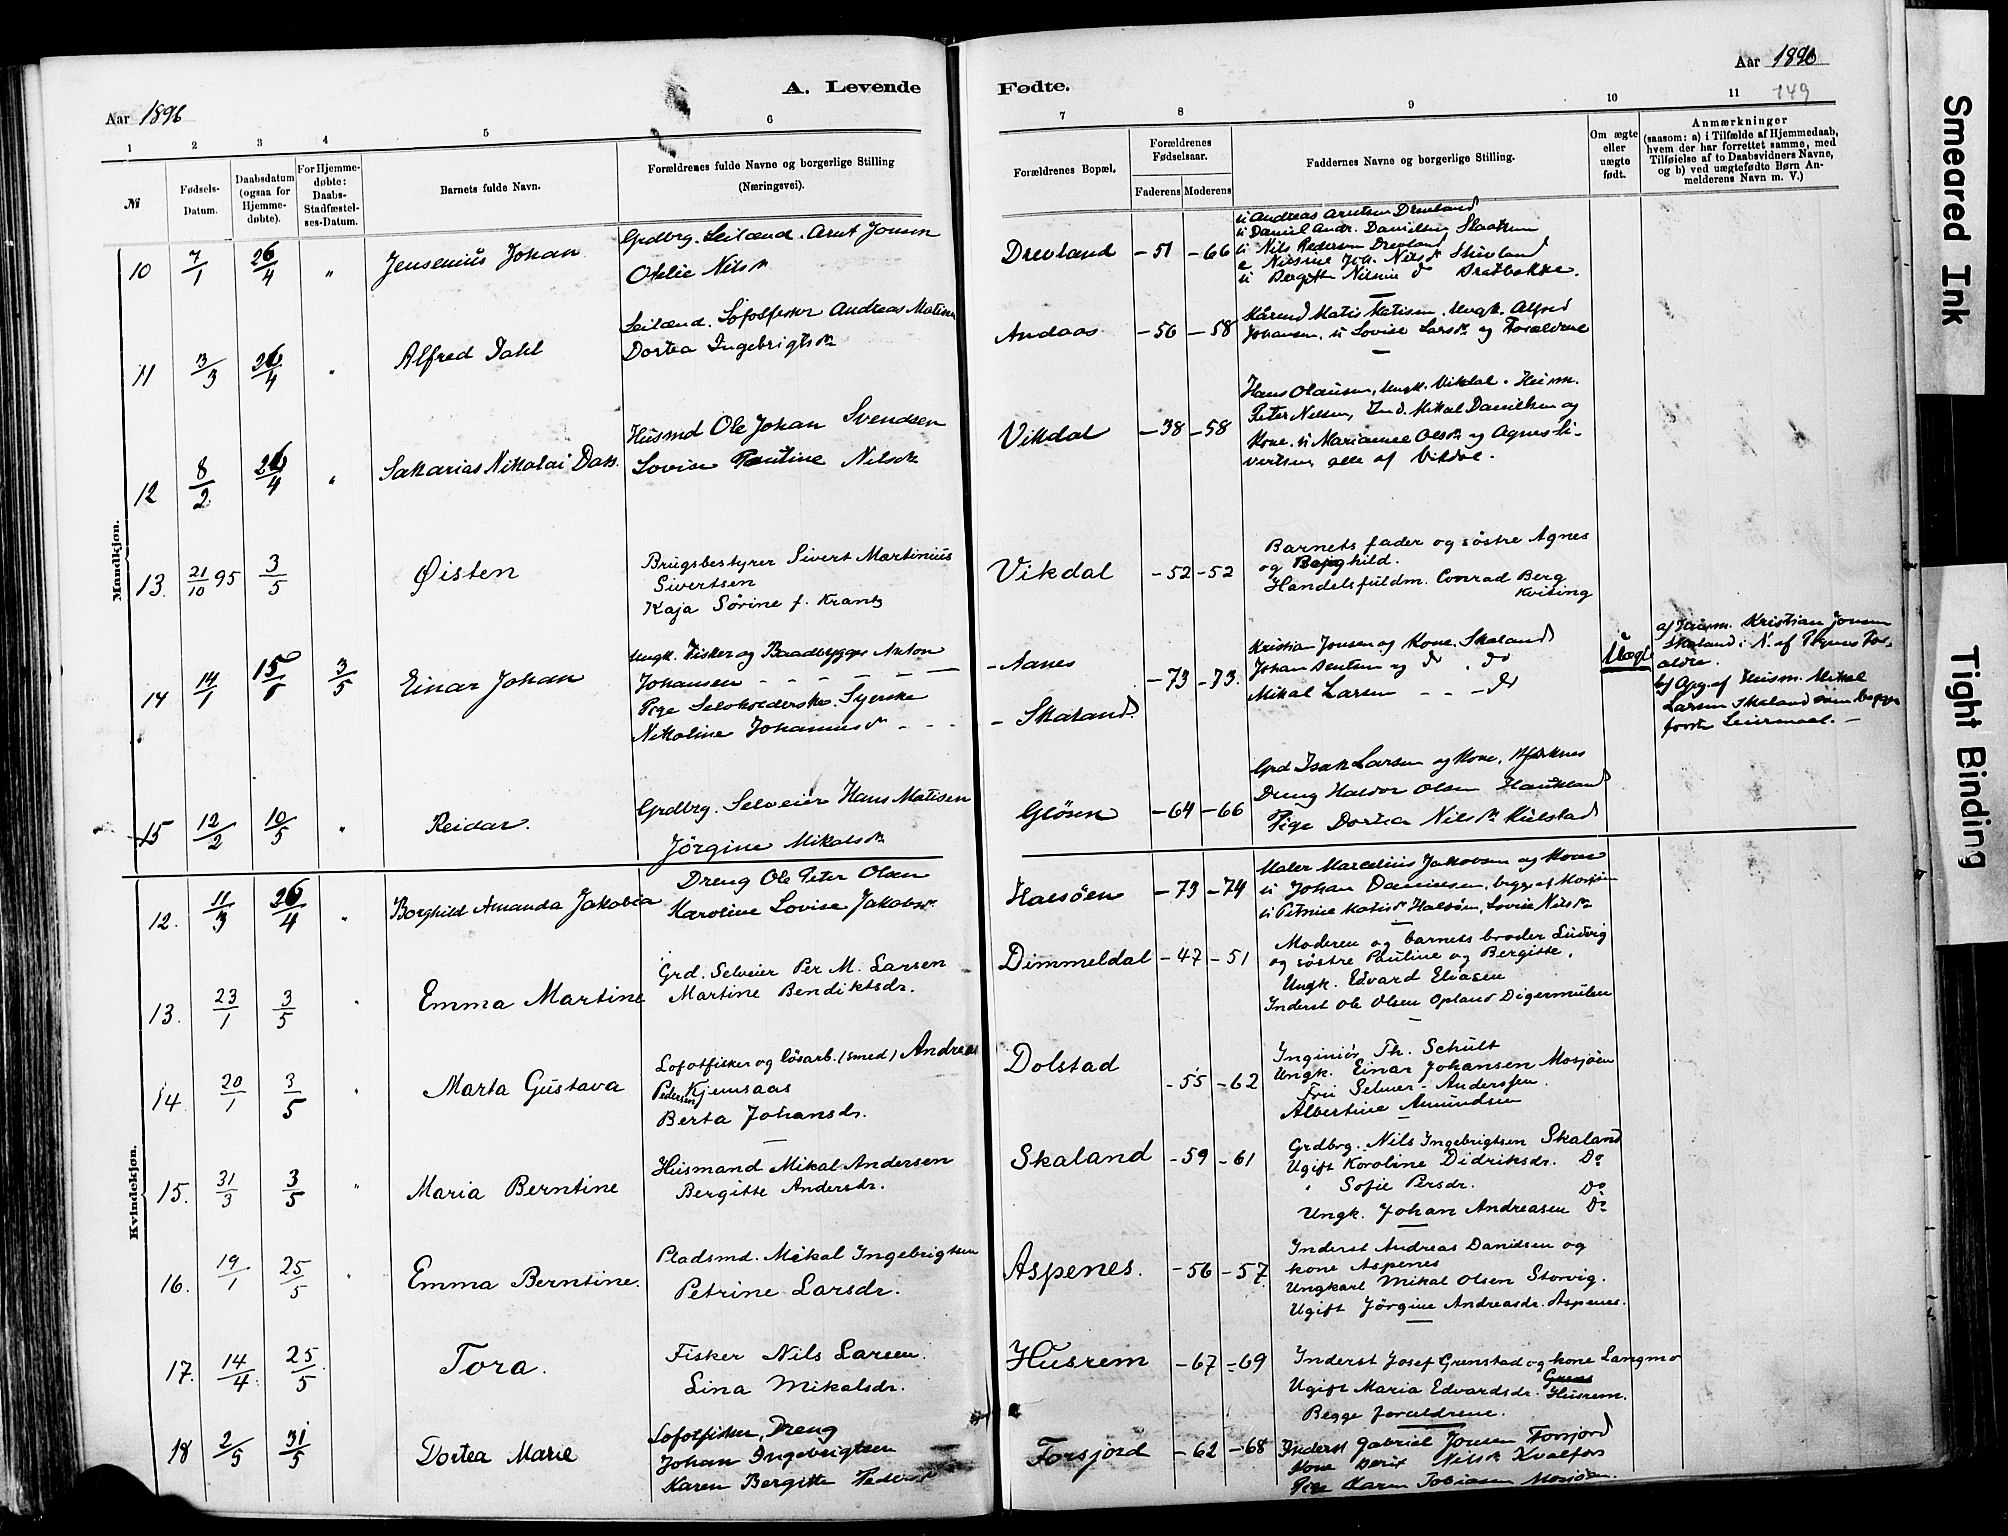 Aar 1896
A. Levende
Fødte.
Aar 1896
149
1 2 3 4 5 6 7 8 9 10 11
№
Fødsels-Datum.
Daabsdatum (ogsaa for Hjemmedøbte).
For Hjemmedøbte: Daabs-Stadfæstelses-Datum.
Barnets fulde Navn.
Forældrenes fulde Navne og borgerlige Stilling
(Næringsvei).
Forældrenes Bopæl.
Forældrenes Fødselsaar.
Faderens Moderens
Faddernes Navne og borgerlige Stilling.
Om ægte eller uægte født.
Anmærkninger
(saasom: a) i Tilfælde af Hjemmedaab,
hvem der har forrettet samme, med
Tilføielse af to Daabsvidners Navne,
og b) ved uægtefødte Børn Anmelderens Navn m. V.)
Mandkjøn.
10 7/1 26/4 " Jensenius Johan
Grdbrg. Leilænd. Arnt Jonsen
Nilsdr
Drevland -51 -66
Andreas Arntsen Drevland
Daniel Andr. Danielsen
Nils Pedersen Drevland
Bergitte
11 3/3 26/4 " Alfred Dahl
Leilænd. Lofotfisker Andreas Matisen
Dortea Ingebrigtsdr
Andaas -56 -58
Kaarmd Matis Matisen, Ungk. Alfred
Johansen, Lovise Larsdr og Forældrene
12 8/2 26/4 " Sakarias Nikolai
Husmd Ole Johan Svendsen
Lovise Pauline Nilsdr
Vikdal -38 -58
Hans Olausen, Ungk. Vikdal. Husm.
Peter Nilsen, Ind. Mikal Danielsen og
Kone. Marianne Olsdr og Agnes Si-
vertsen, alle af Vikdal.
13. 21/10 95 3/5 Øisten
Brugsbestyrer Sivert Martinius
Sivertsen
Kaja Sørine f. Krantz
Vikdal -52 -52
Barnets fader og søstre Agnes
og Borghild.
Handelsfuldm. Conrad Berg
Kviting
14 14/1 3/5 Einar Johan
Ungk. Fisker og Baadbygger Anton
Johansen
Pige Selvholderske. Syerske
Nikoline Johannesdr
- Aanes
- Skaland.
-73 -73.
Kristian Jonsen og Kone. Skaland
Johan og do. do
Mikal Larsen - - do
Uægte
a) Husm. Kristian Jonsen
Skaland i N. af Pigens For-
ældre.
b) Opg. af Husm. Mikal
Larsen Skaland som begges
første Leiermaal. -
15 12/2 10/5 " Reidar.
Grdbrg. Selveier Hans Matisen
Jørgine Mikalsdr
Gløsen -64 -66
Grd Isak Larsen og Kone,
Dreng Haldor Olsen Haukland
Pige Dortea Nilsdr Kulstad
Kvindekjøn.
12. 11/3 26/4 " Borghild Amanda Jakobia
Dreng Ole Peter Olsen
Karoline Lovise Jakobsdr
Halsøen -73 -74
Maler Marcelius Jakobsen og Kone
Johan Danielsen, begge af Mosjøen
Petrine Matisdr Halsøen, Lovise Nilsdr
13. 23/1 3/5 " Emma Martine
Grd. Selveier Per M. Larsen
Martine Bendiktsdr.
Dimmeldal -47 -51
Moderen og barnets broder Ludvig
og søstre Pauline og Bergitte,
Ungk. Edvard Eliasen
Inderst Ole Olsen Opland Digermulen
14. 20/1 3/5 " Marta Gustava
Lofotfisker og løsarb. (smed) Andreas
Pedersen Kjemsaas
Berta Johansdr.
Dolstad -55 -62
Inginiør Th. Schult
Ungk. Einar Johansen Mosjøen
Fru Selmer-Anderssen.
Albertine Amundsen
15. 31/3 3/5 " Maria Berntine
Husmand Mikal Andersen
Bergitte Andersdr.
Skaland -59 -61
Grdbrg. Nils Ingebrigtsen Skaland
Ugift Karoline Didriksdr. Do
" Sofie Persdr. Do
Ungk. Johan Andreasen Do
16. 19/1 25/5 " Emma Berntine.
Pladsmd. Mikal Ingebrigtsen
Petrine Larsdr.
Aspenes. -56 -57
Inderst Andreas Danielsen og
kone Aspenes
Ungkarl Mikal Olsen Storvig.
Ugift Jørgine Andreasdr. Aspenes.
17. 14/4 25/5 Tora.
Fisker Nils Larsen.
Lina Mikalsdr.
Husrem -67 -69
Inderst Josef Grenstad og kone Langmo
Ugift Maria Edvardsdr. Husrem.
Begge forældrene.
18 2/5 31/5 Dortea Marie
Lofotfisker, Dreng
Johan Ingebrigtsen
Karen Bergitte Pedersdr
Forsjord -62 -68
Inderst Gabriel Jonsen Forsjord
Kone Berit Nilsdr Kvalfors
Pige Karen Tobiasen Mosjøen.
Smeared Ink
Tight Binding